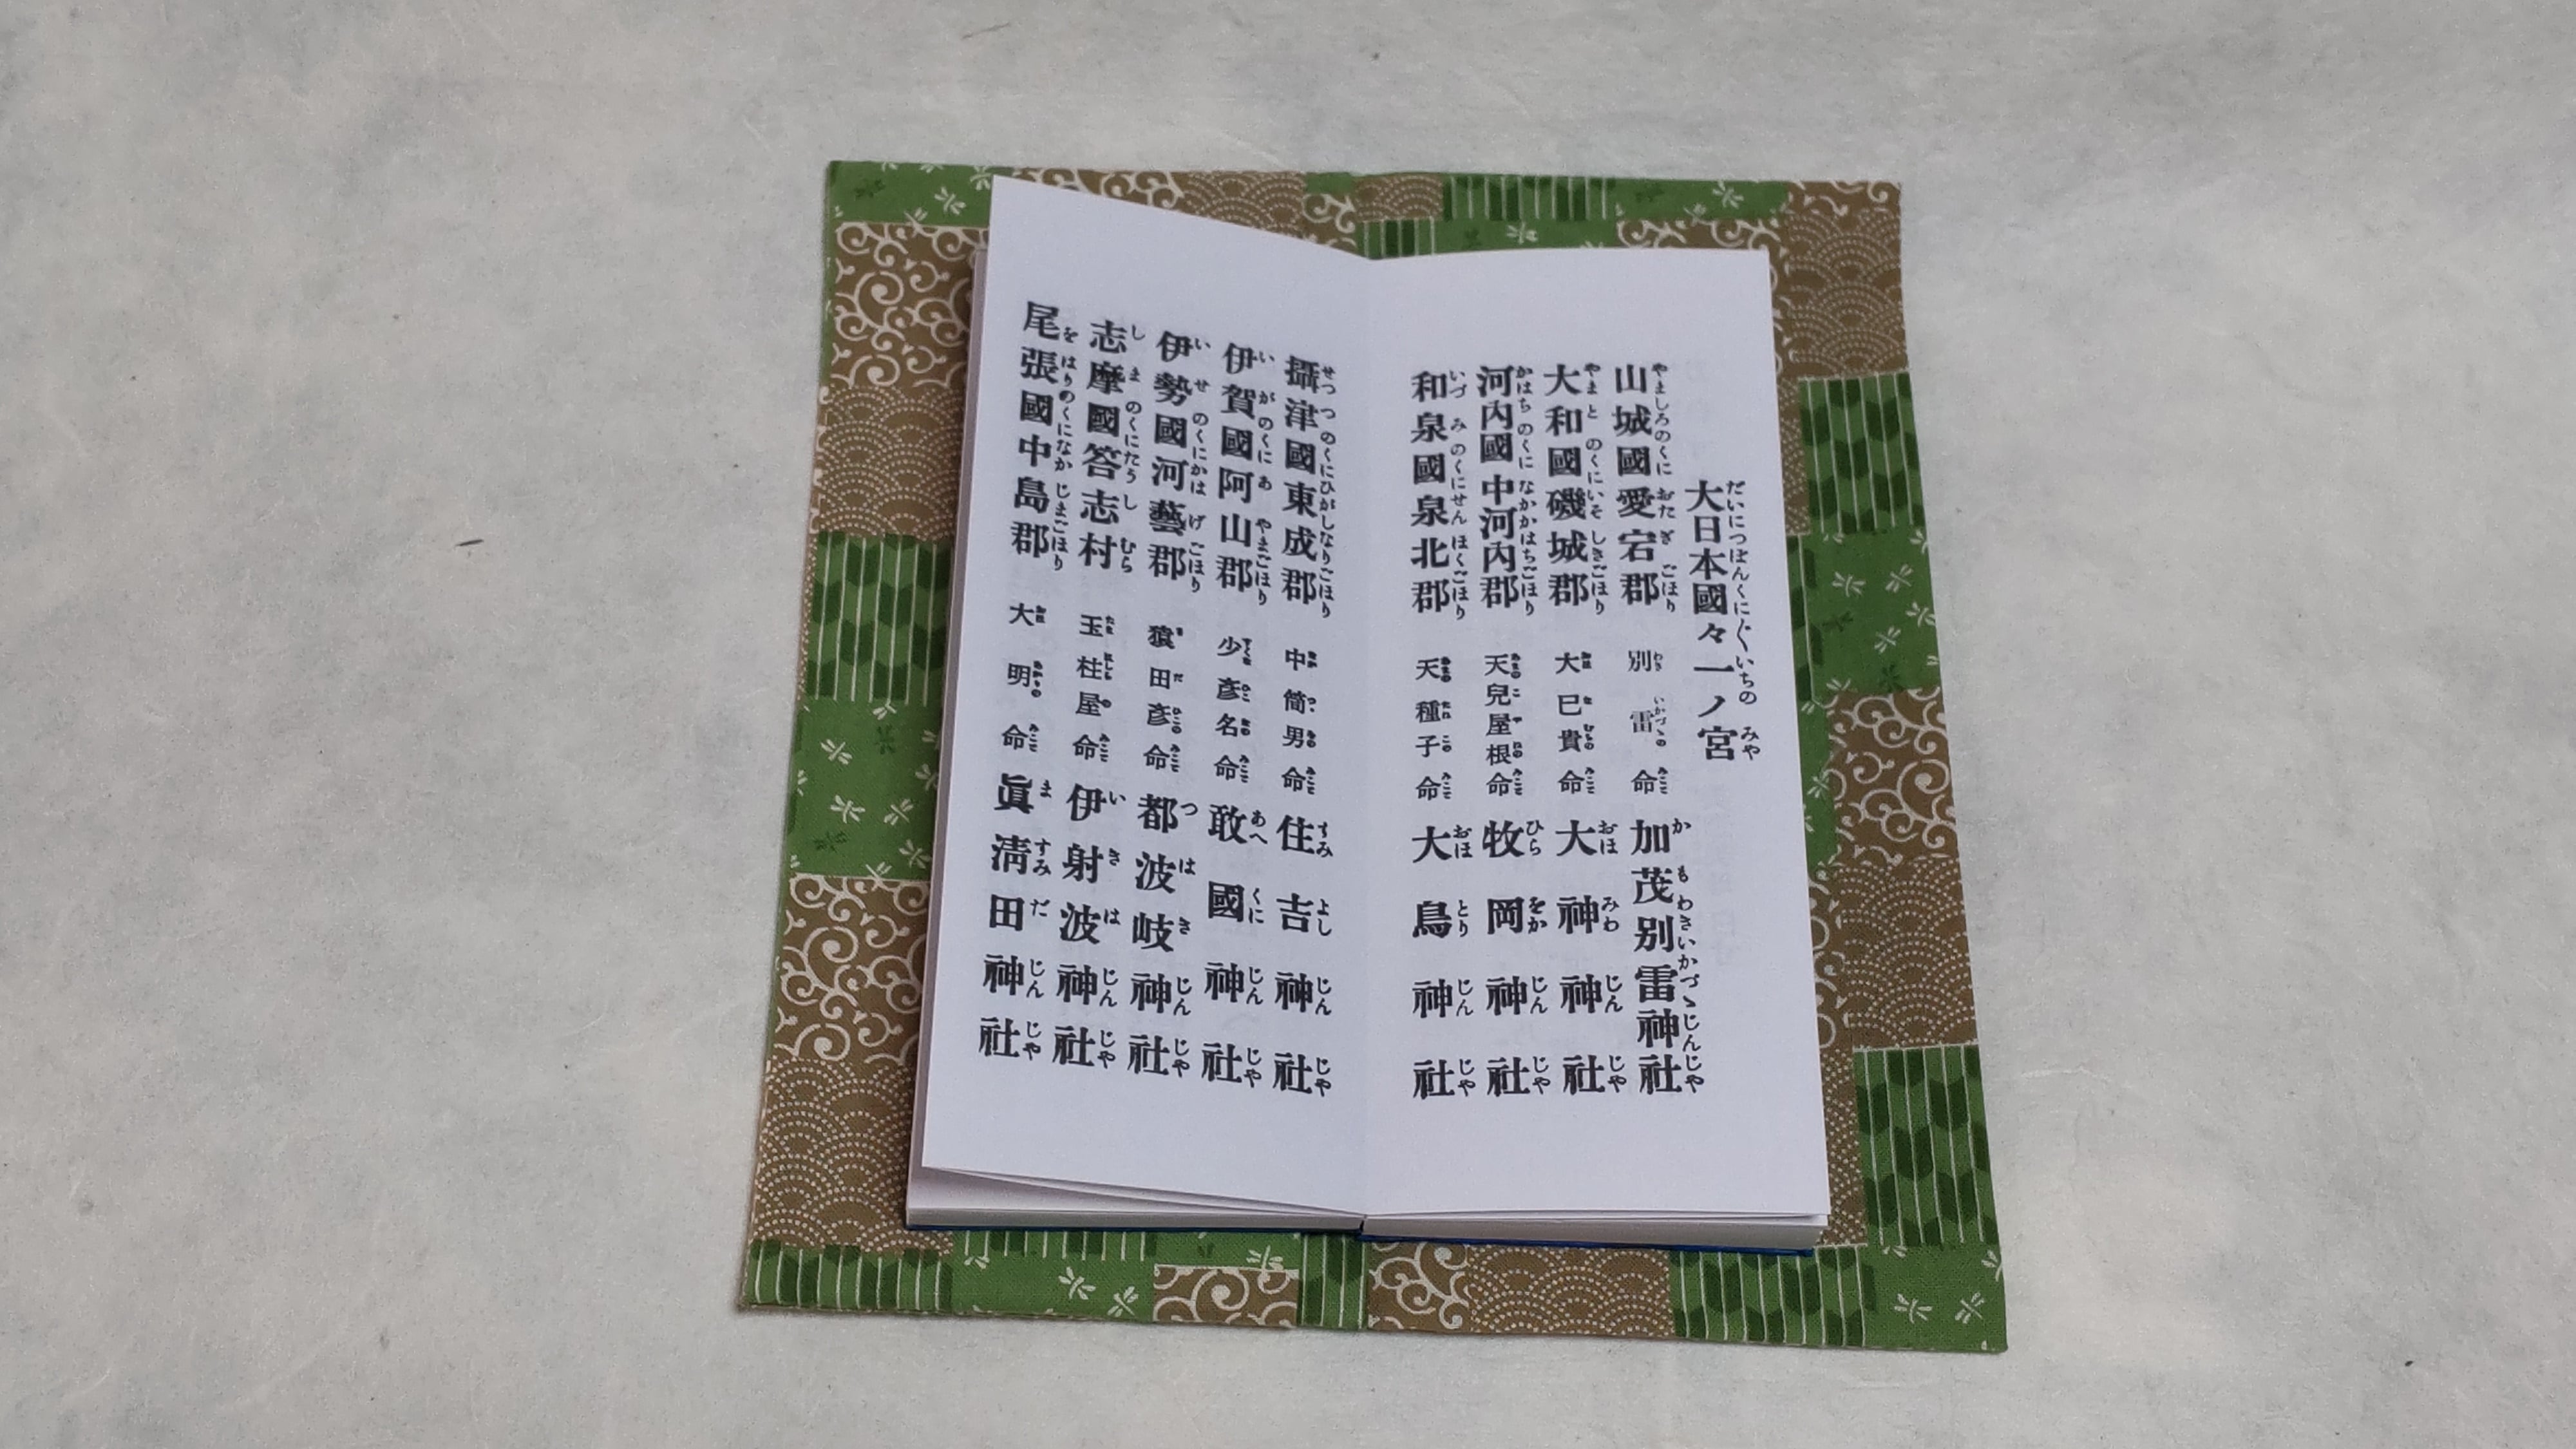 大日本國々一ノ宮
山城國愛宕郡 別雷命 加茂別雷神社
大和國磯城郡 大巳貴命 大神神社
河内國中河内郡 天兒屋根命 牧岡神社
和泉國泉北郡 天種子命 大鳥神社
攝津國東成郡 中筒男命 住吉神社
伊賀國阿山郡 少彦名命 敢國神社
伊勢國河藝郡 猿田彦命 都波岐神社
志摩國答志村 玉柱屋命 伊射波神社
尾張國中島郡 大明命 眞清田神社